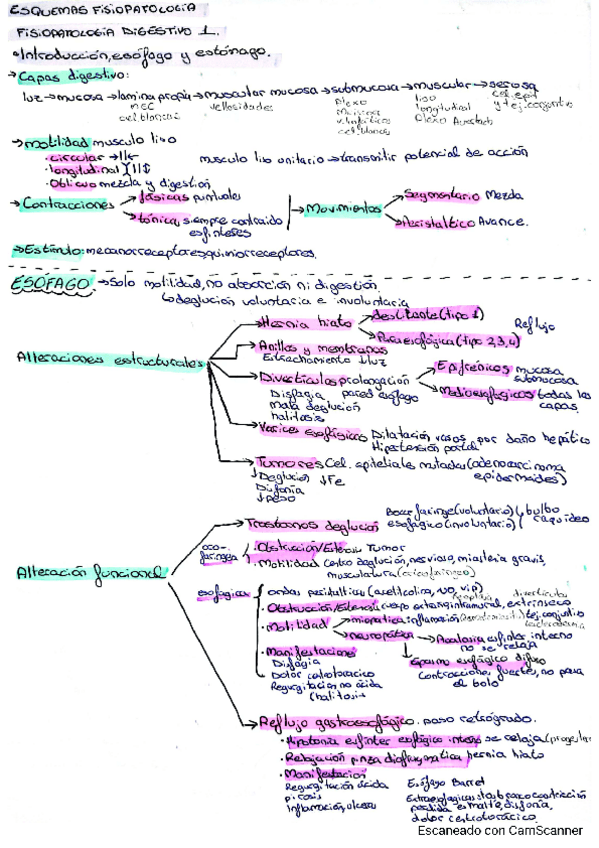 ESQUEMAS FISIOPATOLOGÍA
FISIOPATOLOGÍA DIGESTIVO 1.
•Introducción, esófago y estómago.
→Capas digestivo:
luz→mucosa→lamina propia→muscular mucosa→submucosa→muscular→serosa
MEC vellosidades Plexo liso cel. epit
cel. blancas longitudinal y tej. conjuntivo
Plexo Auerbach
cel. blancas
→Motilidad musculo liso
•circular →||← musculo liso unitario→transmitir potencial de acción
•longitudinal
•Oblicuo mezcla y digestión
→Contracciones →fásicas puntuales →Movimientos →Segmentario Mezcla
→tónica, siempre contraido →Peristáltico Avance.
esfínteres
→Estímulo: mecanorreceptores, quimiorreceptores.
ESÓFAGO. →Solo motilidad, no absorción ni digestión
↳deglución voluntaria e involuntaria
Alteraciones estructurales
→Hernia hiato →deslizante (tipo 1) Reflujo
→Paraesofágica (tipo 2,3,4)
→Anillos y membranas
Estrechamiento ↓luz
→Divertículos prolongación pared esófago →Epifrénicos mucosa submucosa
Disfagia →Medioesofágicos todas las capas
Mala deglución
halitosis
→Varices esofágicas Dilatación vasos por daño hepático
Hipertensión portal
→Tumores Cel. epiteliales mutadas (adenocarcinoma
epidermoides)
↓Deglución ↓Fe
Disfonía
↓peso
Alteración funcional
→Trastornos deglución Bucofaringe (voluntario) bulbo
esofágico (involuntario) raquídeo
oro-faríngea •Obstrucción/Estenosis Tumor
•Motilidad centro deglución, nervioso, miastenia gravis,
musculatura (cricofaríngeo)
esofágica ondas peristálticas (acetilcolina, NO, VIP)
neoplasia divertículos
•Obstrucción/Estenosis cuerpo extraño, intramural, extrínseco
•Motilidad →miopática inflamación tej. conjuntivo
→neuropática →Acalasia esfínter interno
no se relaja
→Espasmo esofágico difuso
Contracciones fuertes, no pasa
el bolo
•Manifestaciones
Disfagia
Dolor centrotoracico
Regurgitación no ácida
(halitosis)
→Reflujo gastroesofágico. paso retrógrado.
•Hipotonía esfínter esofágico interno se relaja
•Relajación pinza diafragmatica hernia hiato
•Manifestación
Regurgitación ácida Esófago Barret
pirosis Extraesofágicas: tos, broncoconstricción
Inflamación, úlceras perdida esmalte, disfonía,
dolor centrotorácico.
Escaneado con CamScanner